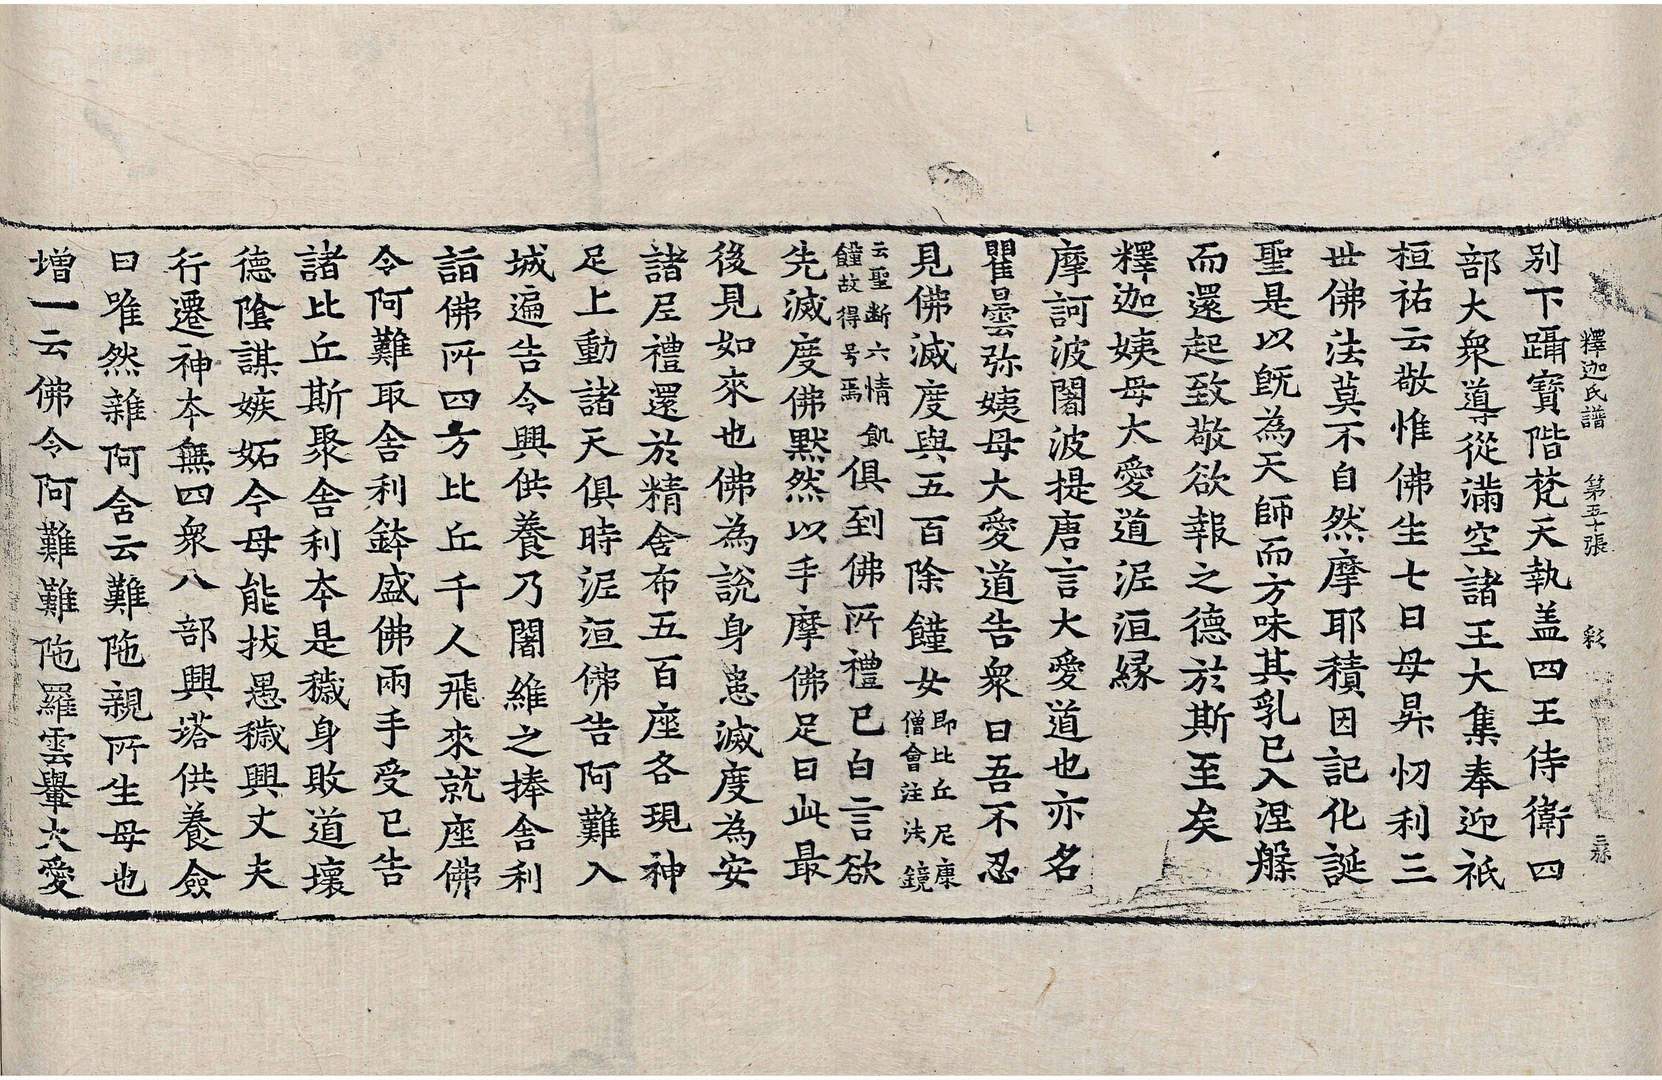 釋迦氏譜 第五十張 彩
別下躡寶階梵天執盖四王侍衛四
部大衆導從滿空諸王大集奉迎祇
桓祐云敬惟佛生七日母昇忉利三
世佛法莫不自然摩耶積因記化誕
聖是以旣為天師而方味其乳已入涅槃
而還起致敬欲報之德於斯至矣
釋迦姨母大愛道泥洹緣
摩訶波闍波提唐言大愛道也亦名
瞿曇弥姨母大愛道告衆曰吾不忍
見佛滅度與五百除饉女即比丘尼康僧會注法鏡
云聖断六情飢饉故得号焉俱到佛所禮已白言欲
先滅度佛黙然以手摩佛足曰此最
後見如來也佛為說身患滅度為安
諸尼禮還於精舍布五百座各現神
足上動諸天俱時泥洹佛告阿難入
城遍告令興供養乃闍維之捧舍利
詣佛所四方比丘千人飛來就座佛
令阿難取舍利鉢盛佛兩手受已告
諸比丘斯聚舍利本是穢身敗道壞
德隂謀嫉妬今母能拔愚穢興丈夫
行遷神本無四衆八部興塔供養僉
曰唯然雜阿含云難陁親所生母也
增一云佛令阿難難陁羅雲轝大愛